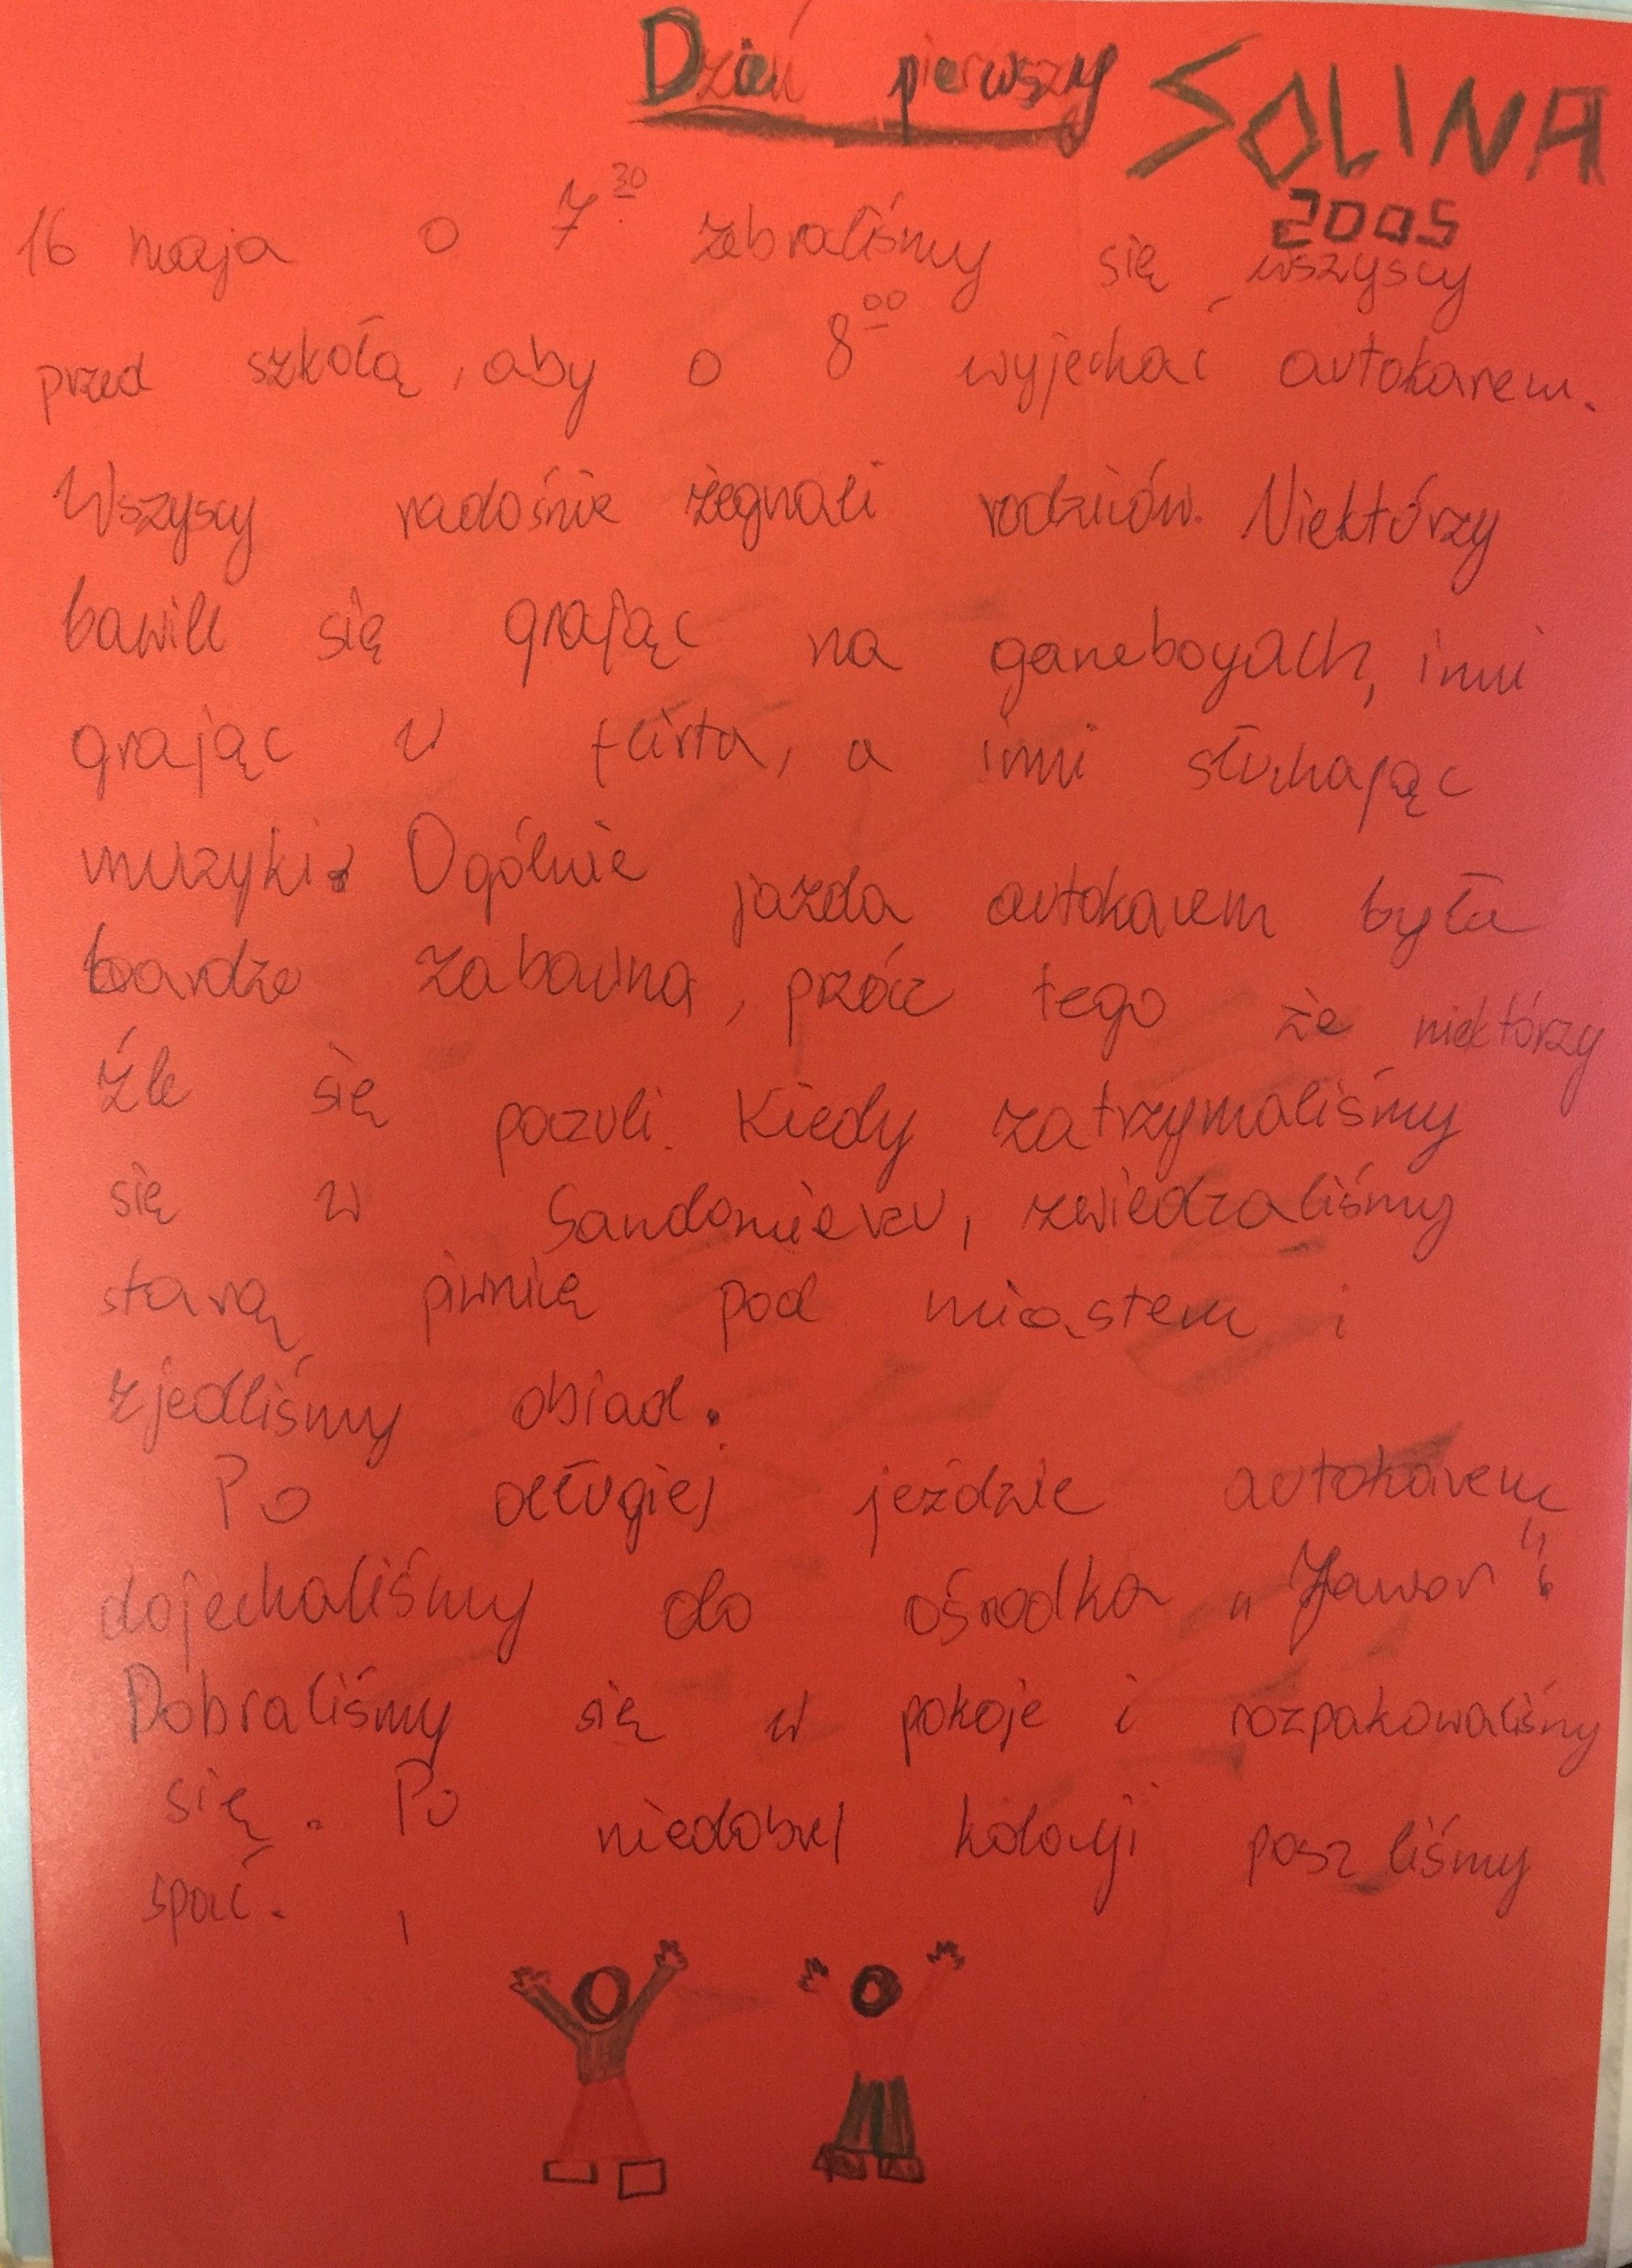 Dzień pierwszy SOLINA
2005
16 maja o 7³⁰ zebraliśmy się wszyscy
przed szkołą, aby o 8⁰⁰ wyjechać autokarem.
Wszyscy radośnie żegnali rodziców. Niektórzy
bawili się grając na gameboyach, inni
grając w flirta, a inni słuchając
muzyki. Ogólnie jazda autokarem była
bardzo zabawna, prócz tego że niektórzy
źle się poczuli. Kiedy zatrzymaliśmy
się w Sandomierzu, zwiedzaliśmy
starą piwnicę pod miastem i
zjedliśmy obiad.
Po długiej jeździe autokarem
dojechaliśmy do ośrodka „Jawor".
Dobraliśmy się w pokoje i rozpakowaliśmy
się. Po niedobrej kolacji poszliśmy
spać.